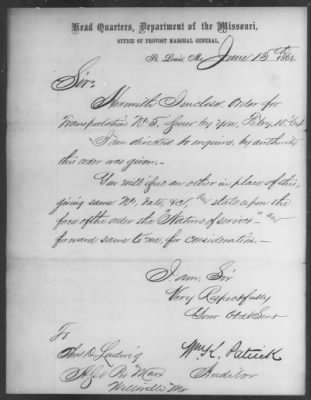 Head Quarters, Department of the Missouri,
OFFICE OF PROVOST MARSHAL GENERAL,
St. Louis, Mo., June 15th 1864.
Sir:
Herewith I enclose Order for
Transportation No 5 given by you, Feby 10" 64
I am directed to enquire, by authority
this order was given.—
You will give an other in place of this,
giving same No. date &c, and state upon the
face of the order the "Nature of service" and
forward same to me, for consideration.—
I am Sir
Very Respectfully
Your Obt Servt
Wm K. Patrick
Auditor
To
Thos D. Ludwig
Asst Pro Mar
Wellsville Mo